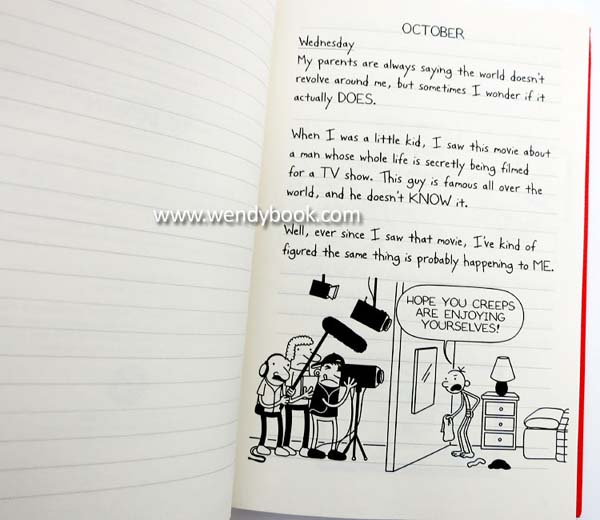 OCTOBER
Wednesday
My parents are always saying the world doesn't
revolve around me, but sometimes I wonder if it
actually DOES.
When I was a little kid, I saw this movie about
a man whose whole life is secretly being filmed
for a TV show. This guy is famous all over the
world, and he doesn't KNOW it.
www.wendybook.com
Well, ever since I saw that movie, I've kind of
figured the same thing is probably happening to ME.
HOPE YOU CREEPS
ARE ENJOYING
YOURSELVES!